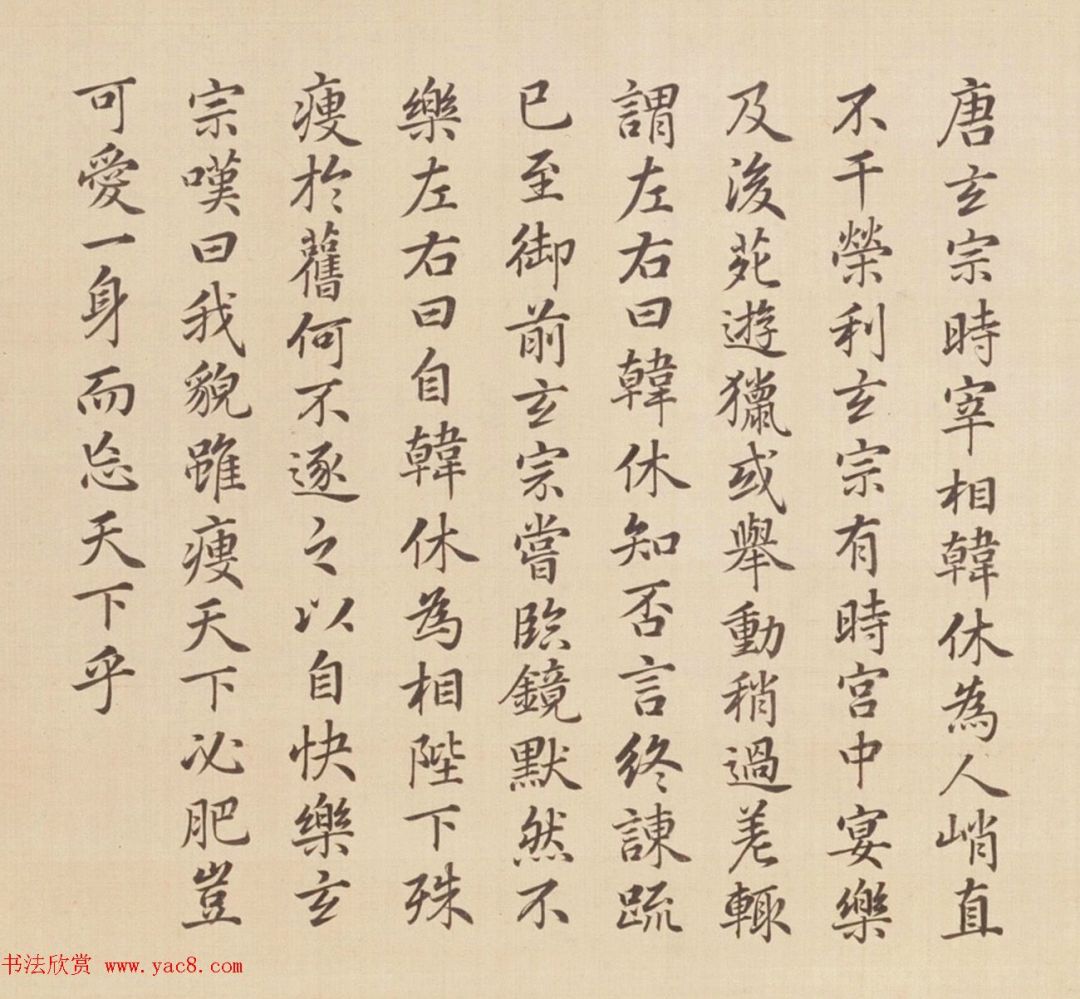 唐玄宗時宰相韓休為人峭直
不干榮利玄宗有時宮中宴樂
及後苑遊獵或舉動稍過差輙
謂左右曰韓休知否言終諫疏
已至御前玄宗嘗臨鏡默然不
樂左右曰自韓休為相陛下殊
瘦於舊何不逐之以自快樂玄
宗嘆曰我貌雖瘦天下必肥豈
可愛一身而忘天下乎
书法欣赏 www.yac8.com